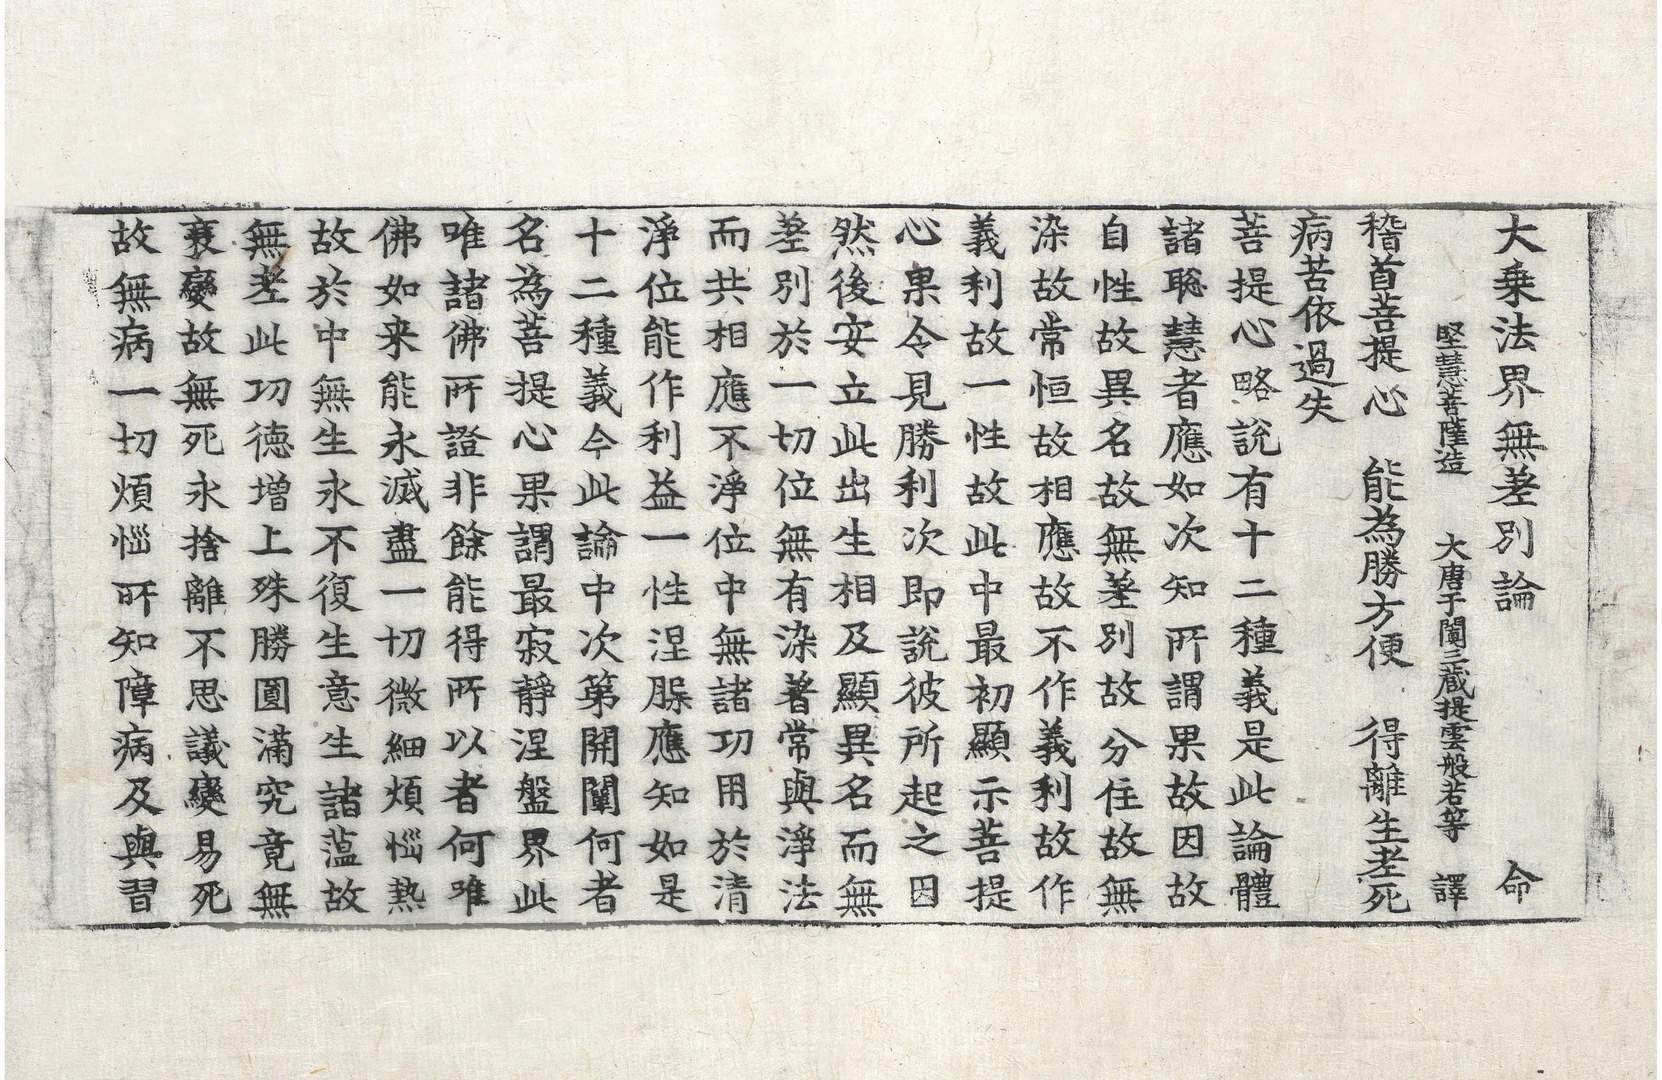 大乗法界無差別論 命
堅慧菩薩造 大唐于闐三藏提雲般若等 譯
稽首菩提心 能為勝方便 得離生老死
病苦依過失
菩提心略説有十二種義是此論體
諸聡慧者應如次知所謂果故因故
自性故異名故無差別故分住故無
染故常恒故相應故不作義利故作
義利故一性故此中最初顯示菩提
心果令見勝利次即説彼所起之因
然後安立此出生相及顯異名而無
差別於一切位無有染著常與淨法
而共相應不淨位中無諸功用於清
淨位能作利益一性涅槃應知如是
十二種義今此論中次第開闡何者
名為菩提心果謂最寂靜涅盤界此
唯諸佛所證非餘能得所以者何唯
佛如来能永滅盡一切微細煩惱熱
故於中無生永不復生意生諸薀故
無老此功德增上殊勝圓滿究竟無
衰變故無死永捨離不思議變易死
故無病一切煩惱所知障病及與習